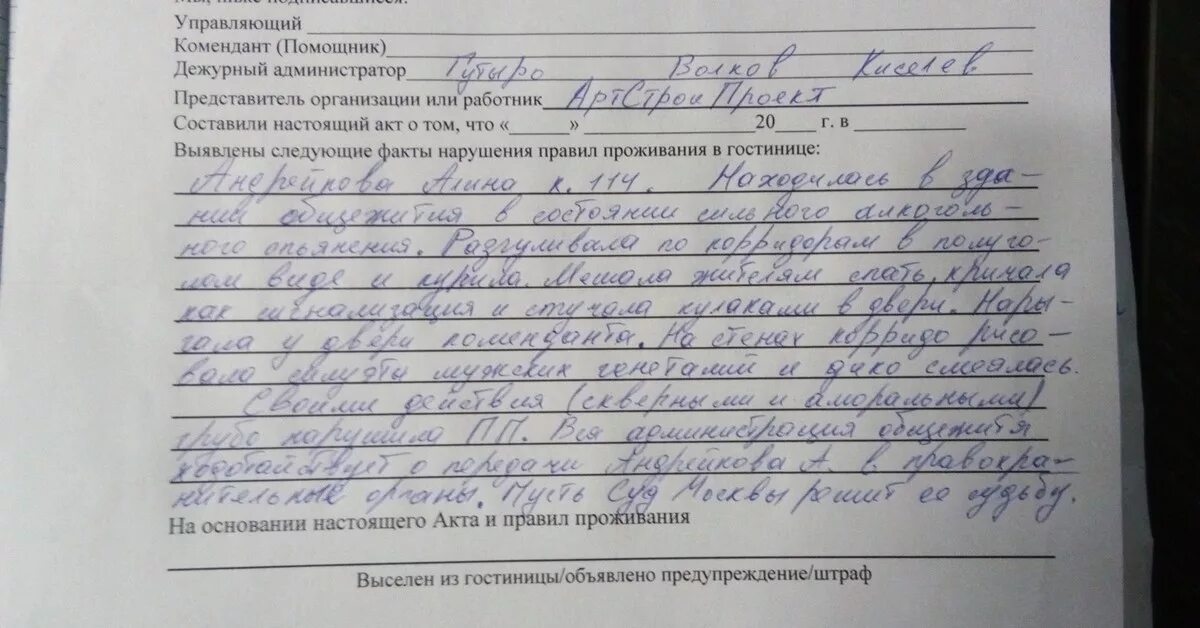 Мы, ниже подписавшиеся:
Управляющий
Комендант (Помощник)
Дежурный администратор Гутыро Волков Киселев
Представитель организации или работник АртСтроиПроект
Составили настоящий акт о том, что «______» ____________ 20____ г. в ____________
Выявлены следующие факты нарушения правил проживания в гостинице:
Андрейкова Алина к. 114. Находилась в зда-
нии общежития в состоянии сильного алкоголь-
ного опьянения. Разгуливала по корридорам в полуго-
лом виде и курила. Мешала жителям спать, кричала
как сигнализация и стучала кулаками в двери. Нары-
гала у двери коменданта. На стенах корридо рисо-
вала силуэты мужских генеталий и дико смеялась.
Своими действия (скверными и аморальными)
грубо нарушила ПП. Вся администрация общежития
ходотайствует о передачи Андрейкова А. в правохра-
нительные органы. Пусть Суд Москвы решит ее судьбу.
На основании настоящего Акта и правил проживания
Выселен из гостиницы/объявлено предупреждение/штраф